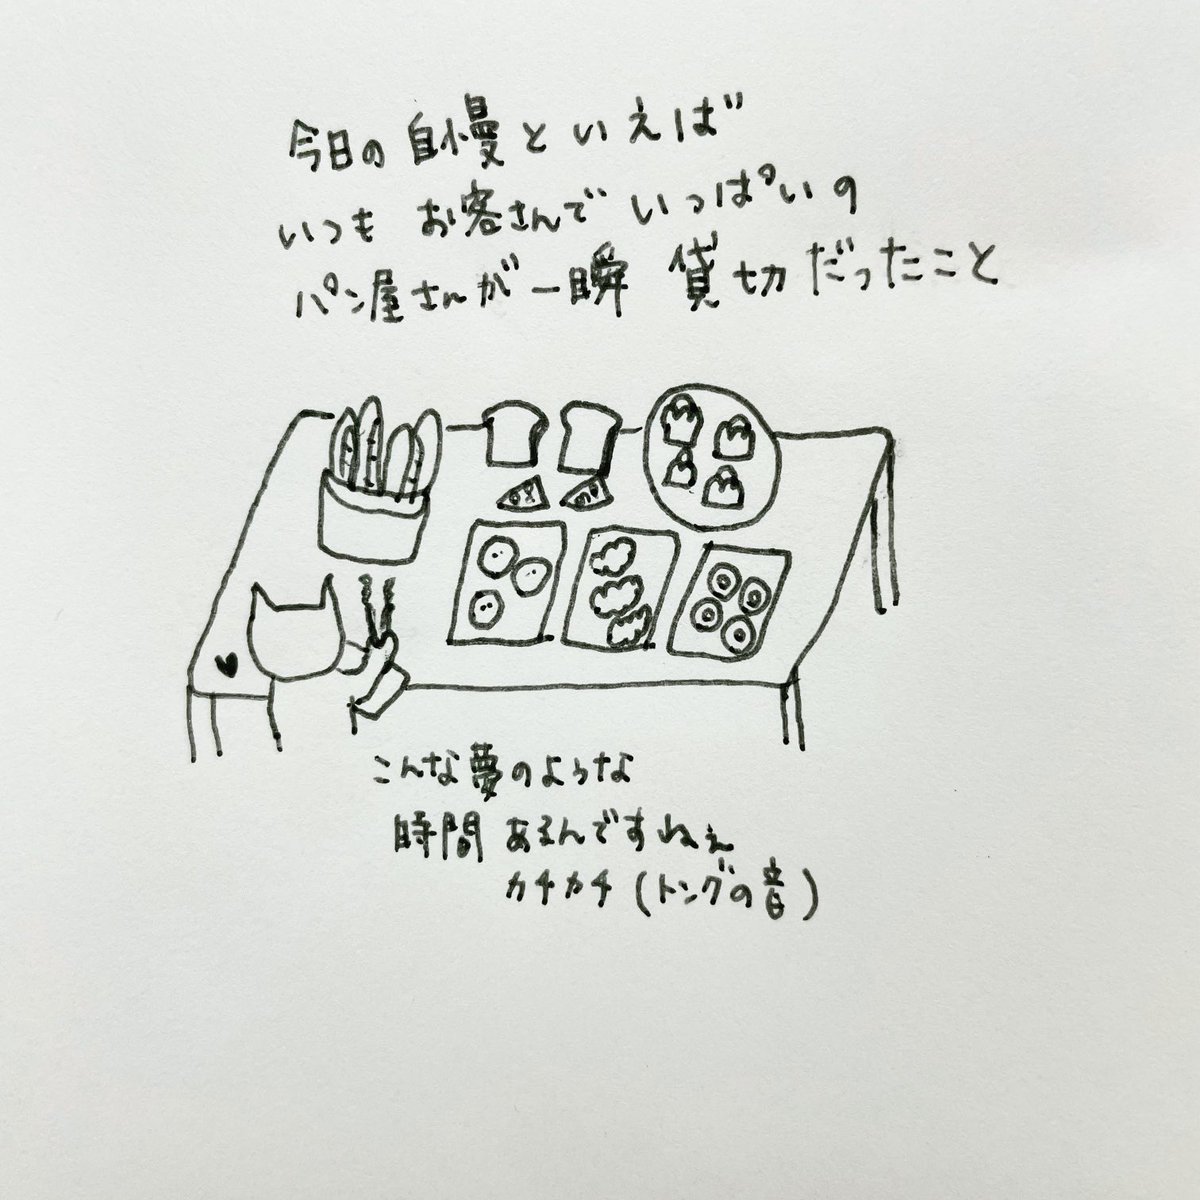 今日の自慢といえば
いつもお客さんでいっぱいの
パン屋さんが一瞬貸切だったこと
こんな夢のような
時間あるんですねぇ
カチカチ(トングの音)